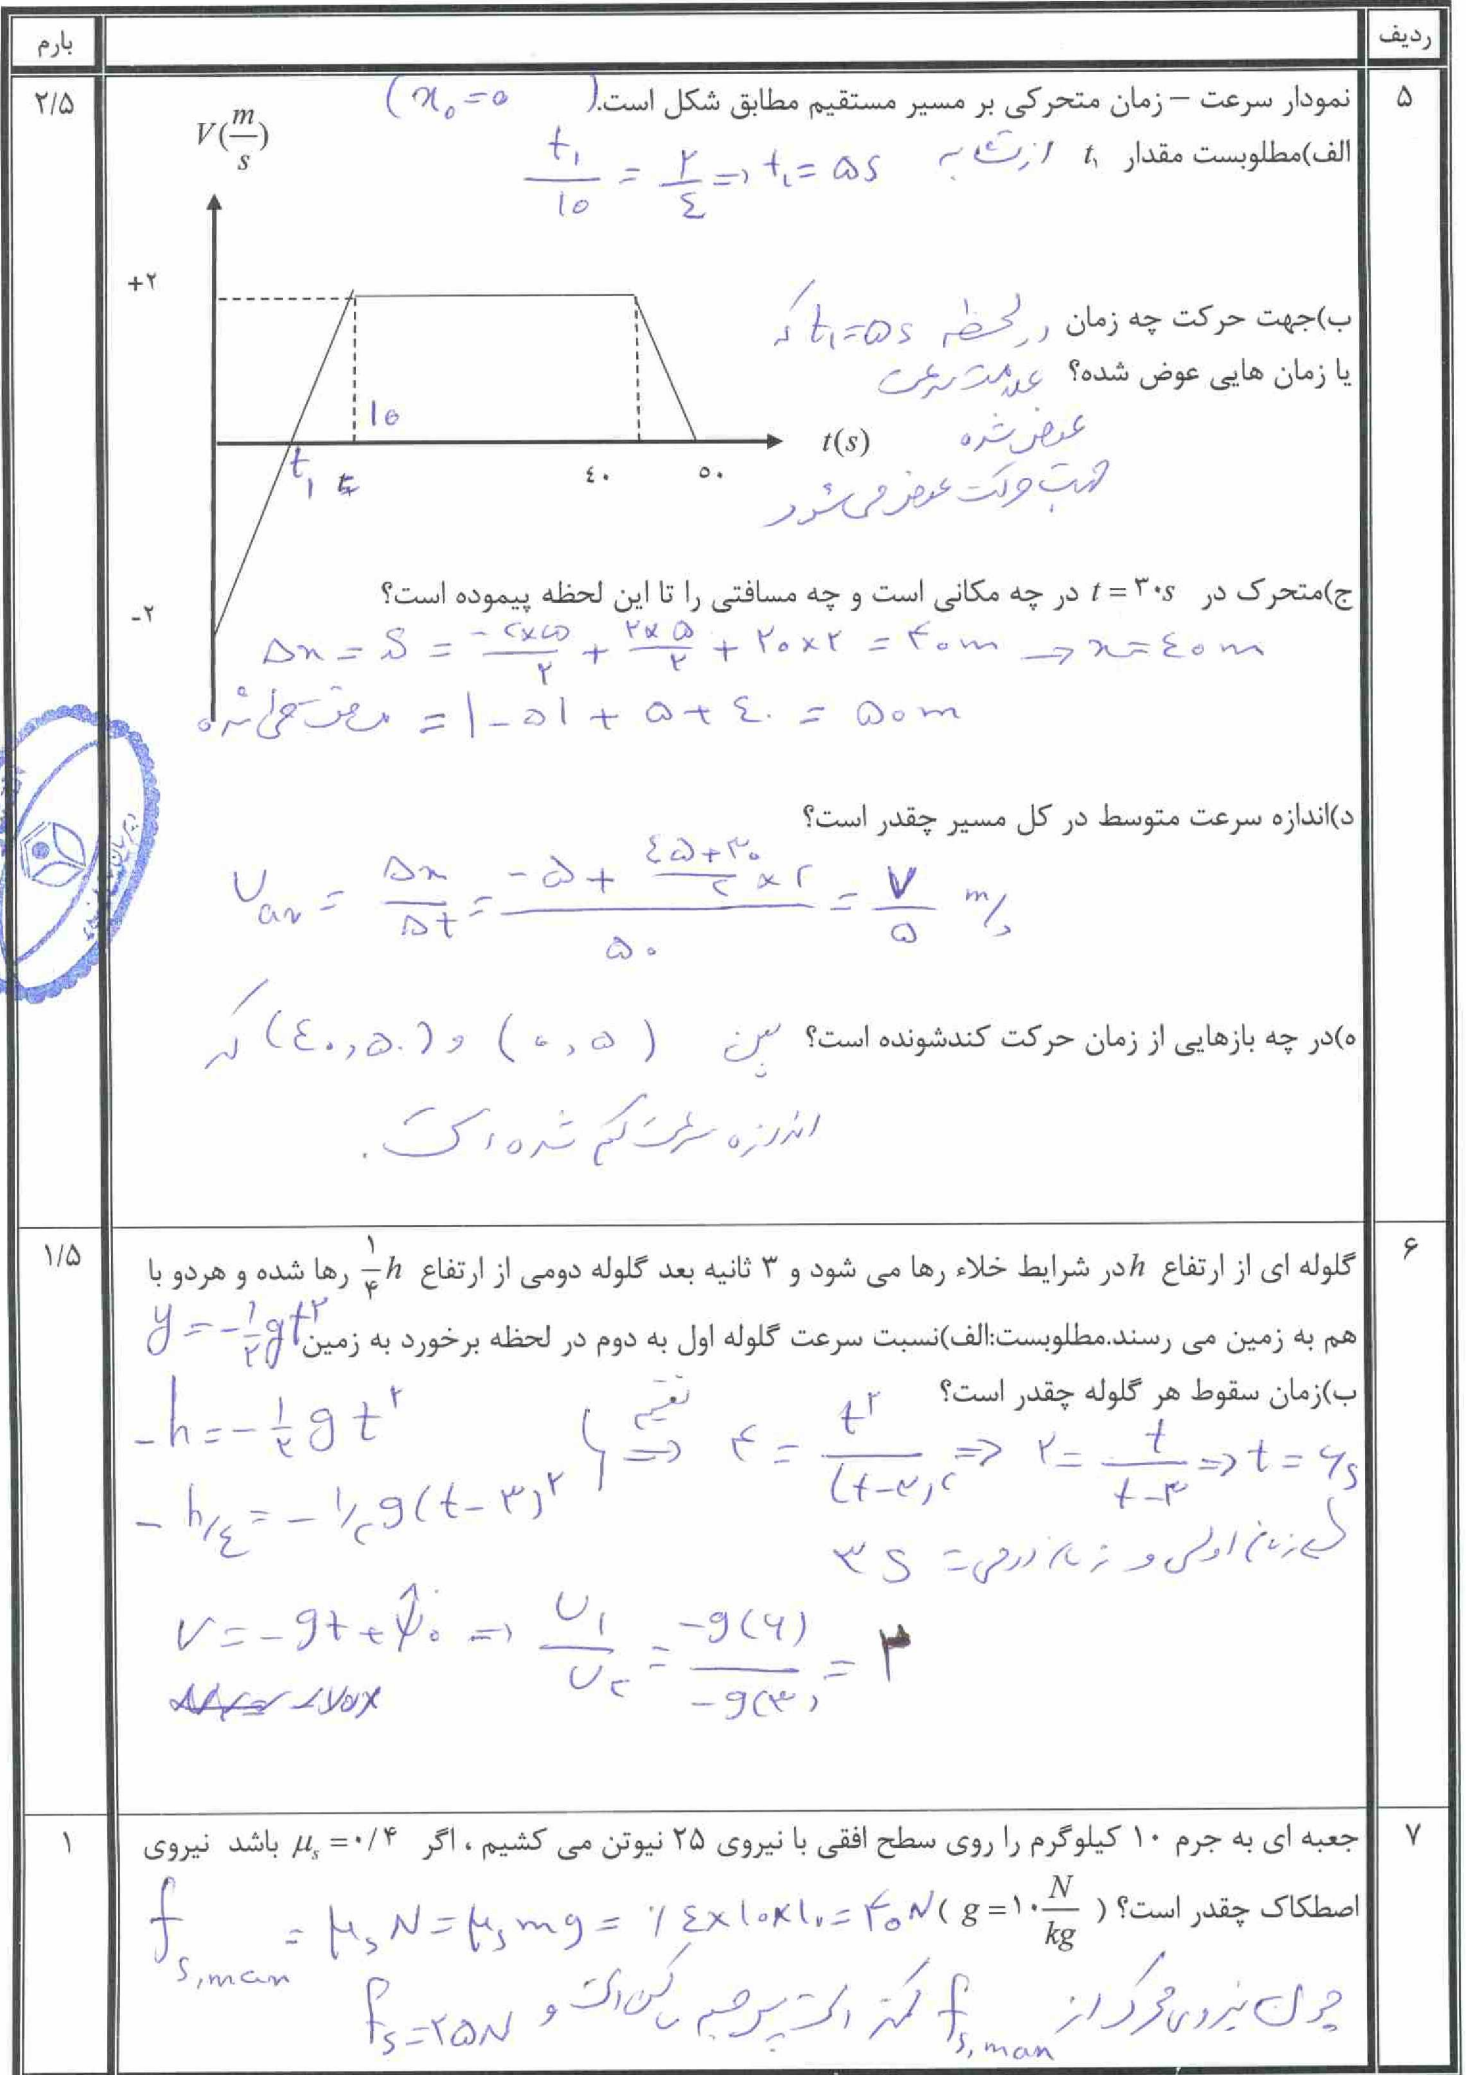 ردیف
بارم
۵
۲/۵
نمودار سرعت – زمان متحرکی بر مسیر مستقیم مطابق شکل است.( x₀=0 )
الف)مطلوبست مقدار t₁ از تشابه
t₁/10 = ۲/٤ => t₁ = ۵s
V(m/s)
+۲
ب)جهت حرکت چه زمان در لحظه t₁=۵s که
یا زمان هایی عوض شده؟ علامت سرعت
عوض شده
جهت حرکت عوض می شود
10
t(s)
t₁
٤۰
۵۰
-۲
ج)متحرک در t = ۳۰s در چه مکانی است و چه مسافتی را تا این لحظه پیموده است؟
Δx = S = -۲×۵/۲ + ۲×۵/۲ + ۲۰×۲ = ۴۰m → x = ٤۰m
مسافت طی شده = |-۵| + ۵ + ٤۰ = ۵۰m
د)اندازه سرعت متوسط در کل مسیر چقدر است؟
v_av = Δx/Δt = (-۵ + (٤۵+۳۰)/۲ × ۲)/۵۰ = ۷/۵ m/s
ه)در چه بازهایی از زمان حرکت کندشونده است؟ بین (۰,۵) و (٤۰,۵۰) که
اندازه سرعت کم شده است.
۶
۱/۵
گلوله ای از ارتفاع h در شرایط خلاء رها می شود و ۳ ثانیه بعد گلوله دومی از ارتفاع ۱/۴ h رها شده و هردو با
هم به زمین می رسند.مطلوبست:الف)نسبت سرعت گلوله اول به دوم در لحظه برخورد به زمین
y = -۱/۲ gt²
ب)زمان سقوط هر گلوله چقدر است؟
-h = -۱/۲ gt²
-h/٤ = -۱/۲ g(t-۳)²
تقسیم => ۴ = t²/(t-۳)² => ۲ = t/(t-۳) => t = ۶s
زمان اولی و زمان دومی = ۳s
v = -gt + v₀ => v₁/v₂ = -g(۶)/-g(۳) = ۲
۷
۱
جعبه ای به جرم ۱۰ کیلوگرم را روی سطح افقی با نیروی ۲۵ نیوتن می کشیم ، اگر μₛ = ۰/۴ باشد نیروی
اصطکاک چقدر است؟ ( g = ۱۰ N/kg )
f s,max = μₛN = μₛmg = ٪٤×10×1۰ = ۴۰N
چون نیروی محرک از f s,max کمتر است پس جسم ساکن است و fₛ = ۲۵N